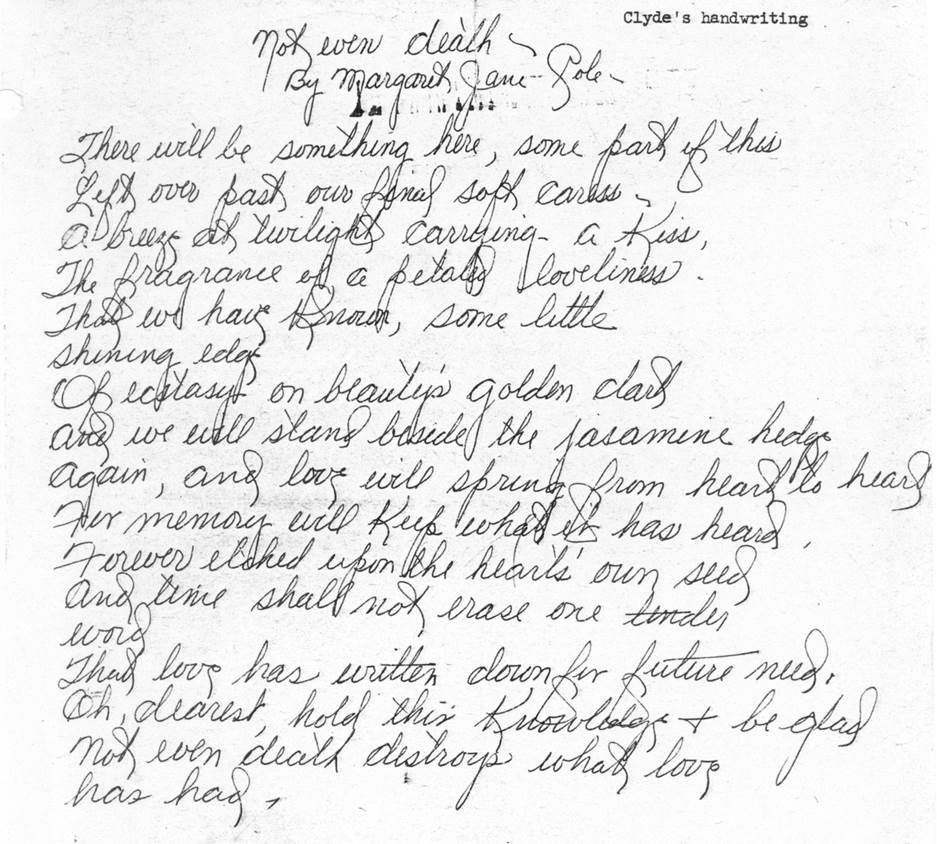 Clyde's handwriting
Not even death
By Margaret Jane Pole
There will be something here, some part of this
Left over past our final soft caress
a breeze at twilight carrying a kiss,
The fragrance of a petaled loveliness.
That we have known, some little
shining edge
Of ecstasy on beauty's golden dart
And we will stand beside the jasamine hedge
again, and love will spring from heart to heart
For memory will keep what it has heard,
Forever etched upon the heart's own seed
And time shall not erase one tender
word
That love has written down for future need.
Oh, dearest, hold this knowledge + be glad
Not even death destroys what love
has had.